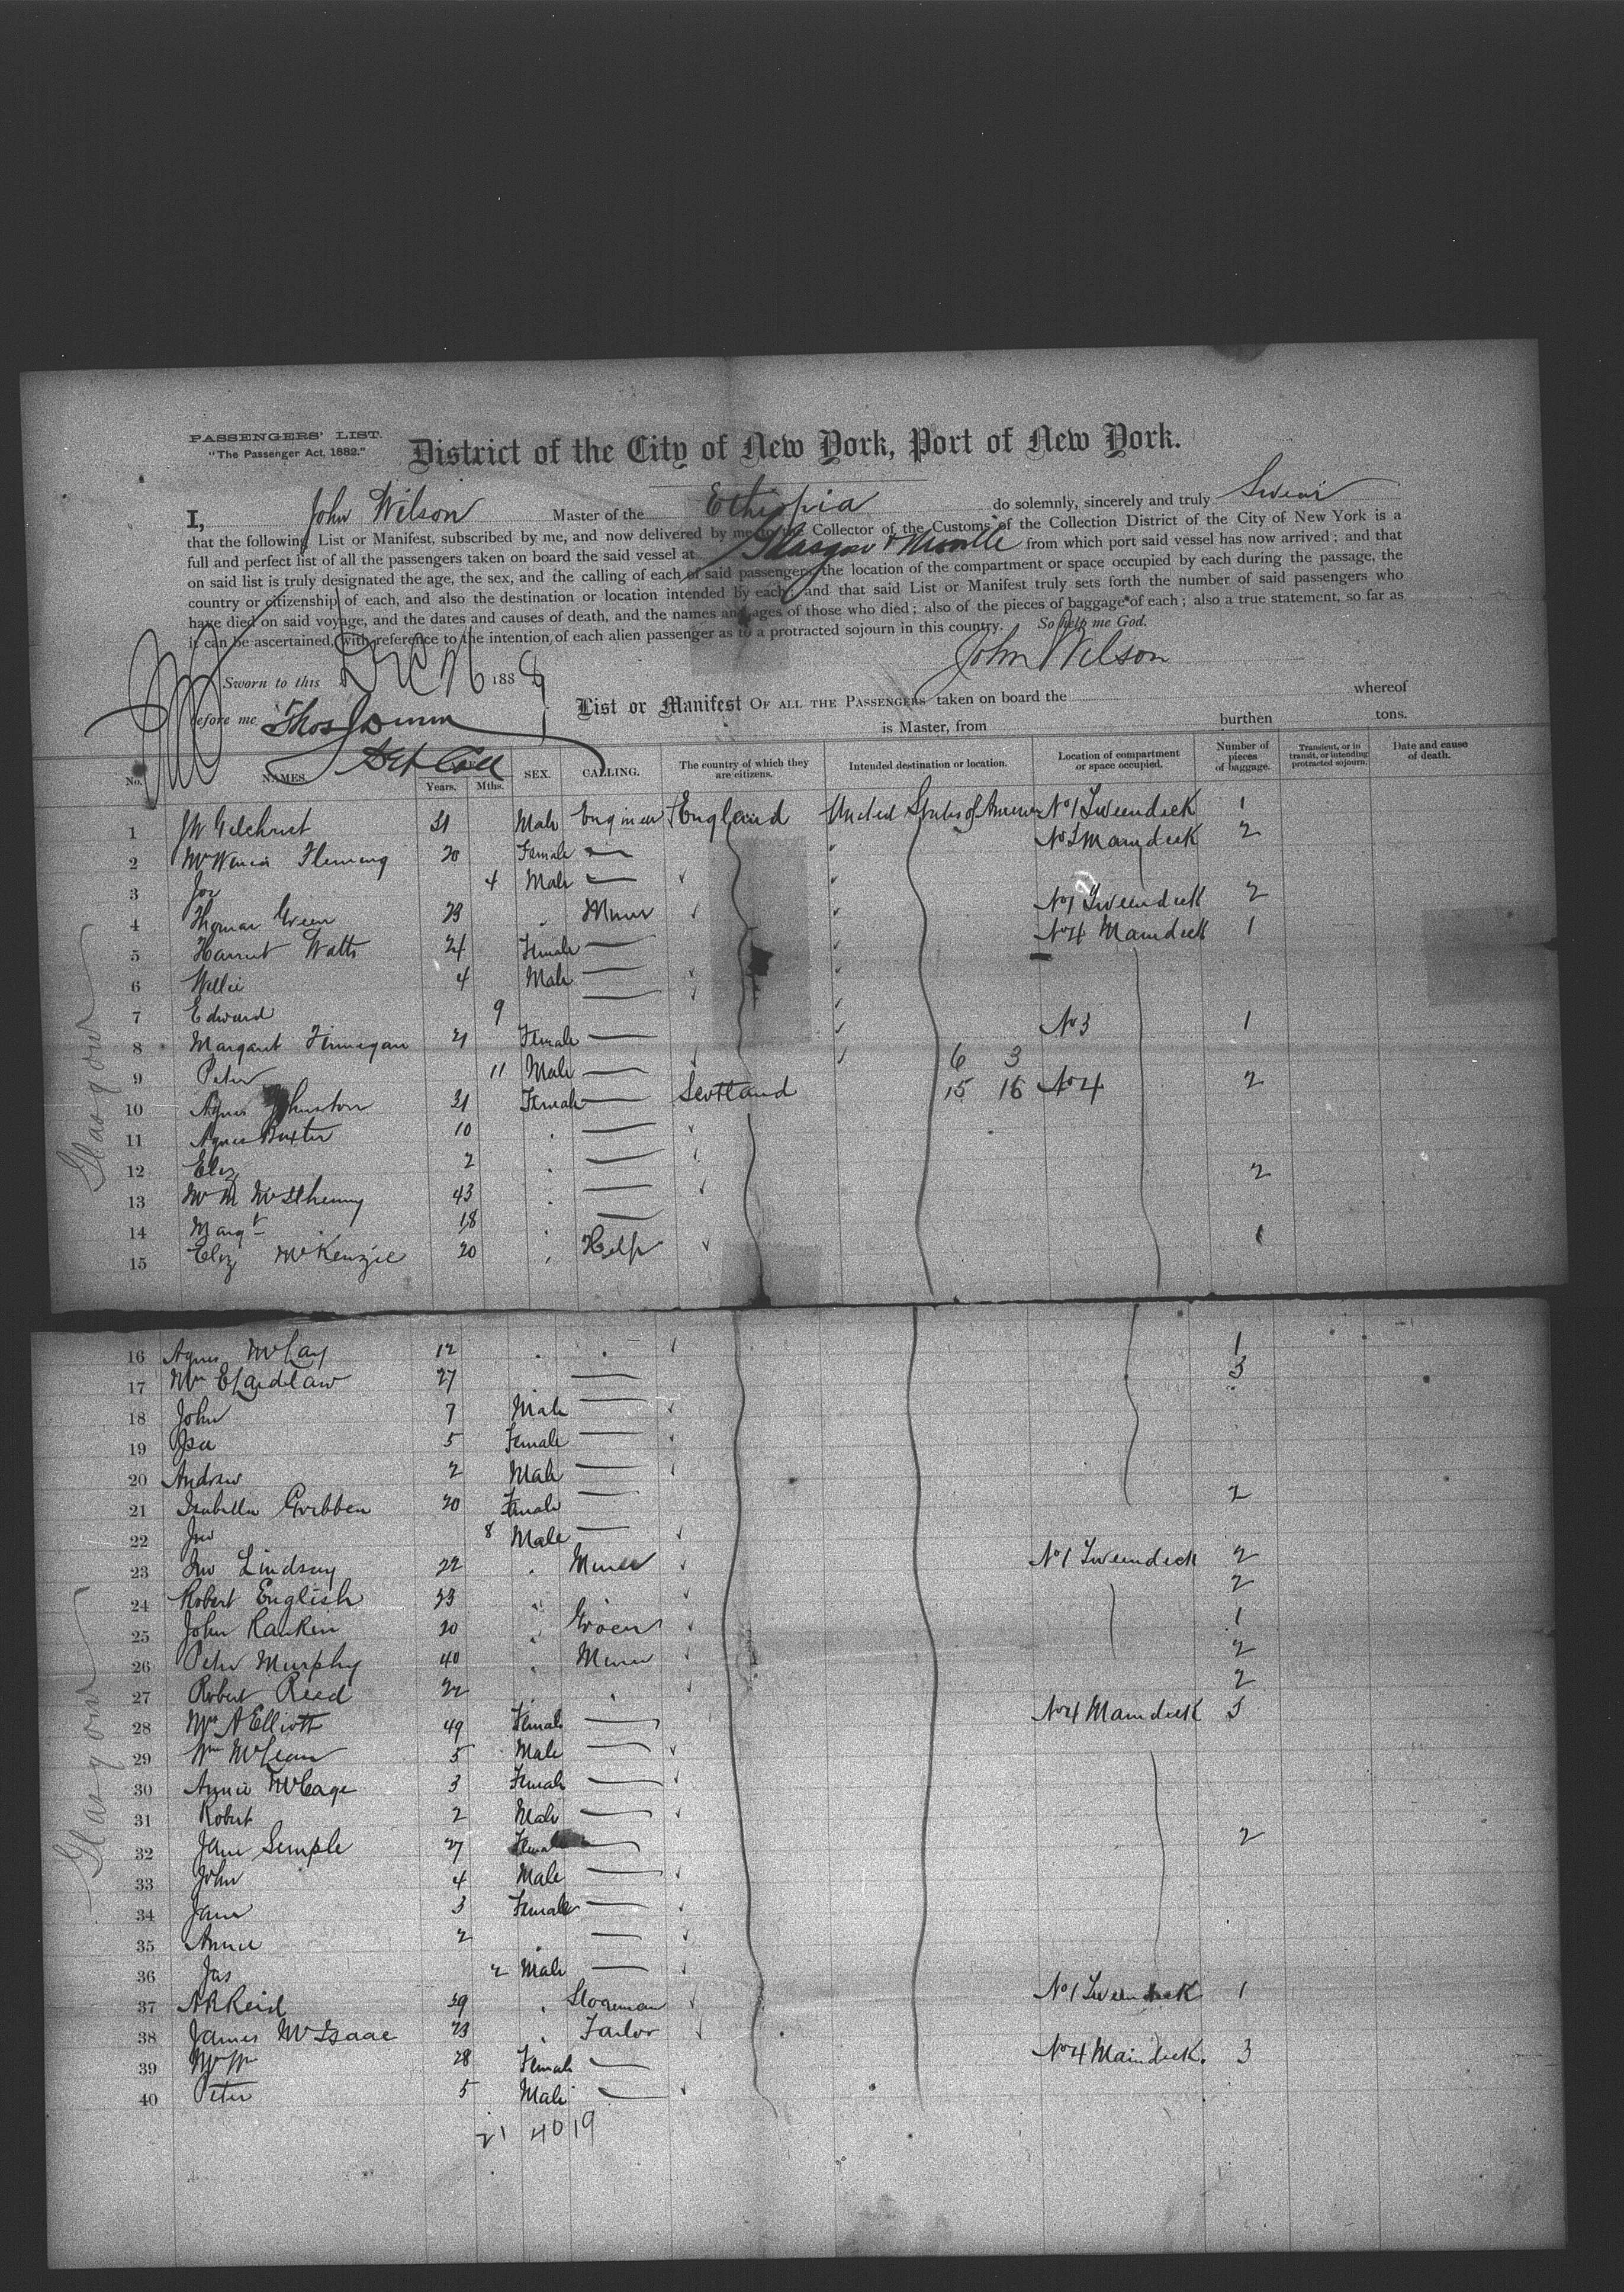 PASSENGERS' LIST.
"The Passenger Act, 1882."
District of the City of New York, Port of New York.
I, John Wilson Master of the Ethiopia do solemnly, sincerely and truly Swear
that the following List or Manifest, subscribed by me, and now delivered by me to the Collector of the Customs of the Collection District of the City of New York is a
full and perfect list of all the passengers taken on board the said vessel at Glasgow & Moville from which port said vessel has now arrived; and that
on said list is truly designated the age, the sex, and the calling of each of said passengers, the location of the compartment or space occupied by each during the passage, the
country or citizenship of each, and also the destination or location intended by each; and that said List or Manifest truly sets forth the number of said passengers who
have died on said voyage, and the dates and causes of death, and the names and ages of those who died; also of the pieces of baggage of each; also a true statement, so far as
it can be ascertained, with reference to the intention of each alien passenger as to a protracted sojourn in this country. So help me God.
John Wilson
Sworn to this Dec 188
before me Thos Dunn
Dep Coll
List or Manifest OF ALL THE PASSENGERS taken on board the whereof
is Master, from burthen tons.
No. NAMES. Years. Mths. SEX. CALLING. The country of which they are citizens. Intended destination or location. Location of compartment or space occupied. Number of pieces of baggage. Transient, or in transit, or intending protracted sojourn. Date and cause of death.
Glasgow
1 JW Gilchrist Male Engineer England United States of America No 1 Tweendeck 1
2 Fleming 20 Female — Maindeck 2
3 Jos 4 Male —
4 Thomas Green 23 " Miner No 1 Tweendeck 2
5 Harriet Watts 24 Female — No 4 Maindeck 1
6 Willie 4 Male —
7 Edward 9 —
8 Margaret Finnegan 21 Female — No 3 1
9 Peter 11 Male — 6 3
10 Agnes Johnston 31 Female — Scotland 15 16 No 4 2
11 Agnes Baxter 10 " —
12 Eliz 2 " —
13 McIlhenny 43 " — 2
14 Margt 18 " —
15 Eliz McKenzie 20 " Help 1
16 Agnes McLay 12 " " 1
17 Mrs E Laidlaw 27 — 3
18 John 7 Male —
19 Isa 5 Female —
20 Andrew 2 Male —
21 Isabella Gribben 20 Female — 2
22 Jno 8 Male —
23 Jno Lindsay 22 " Miner No 1 Tweendeck 2
24 Robert English 23 " " 2
25 John Rankin 20 " Grocer 1
26 Peter Murphy 40 " Miner 2
27 Robert Reed 22 " " 2
Glasgow
28 Mrs A Elliott 49 Female — No 4 Maindeck
29 Wm McLean 5 Male —
30 Annie McCage 3 Female —
31 Robert 2 Male —
32 Jane Semple 27 Female — 2
33 John 4 Male —
34 Jane 3 Female —
35 Annie 2 " —
36 Jas 2 Male —
37 A R Reid 39 " Storeman No 1 Tweendeck 1
38 James McIsaac 23 " Tailor
39 28 Female — No 4 Maindeck. 3
40 Peter 5 Male —
21 40 19